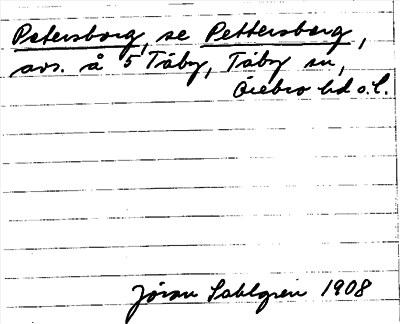 Petersborg, se Pettersborg,
avs. å 5 Täby, Täby sn,
Örebro hd o.l.
Jöran Sahlgren 1908